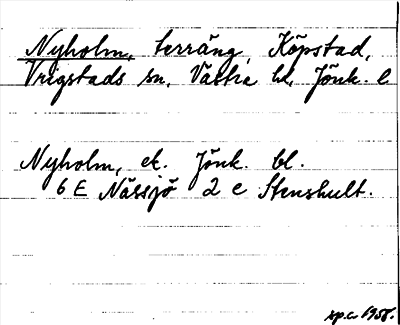 Nyholm, terräng, Köpstad,
Vrigstads sn, Västra hd, Jönk. l
Nyholm, ek. Jönk. bl.
6 E Nässjö 2 c Stenshult.
sp.c. 1958.